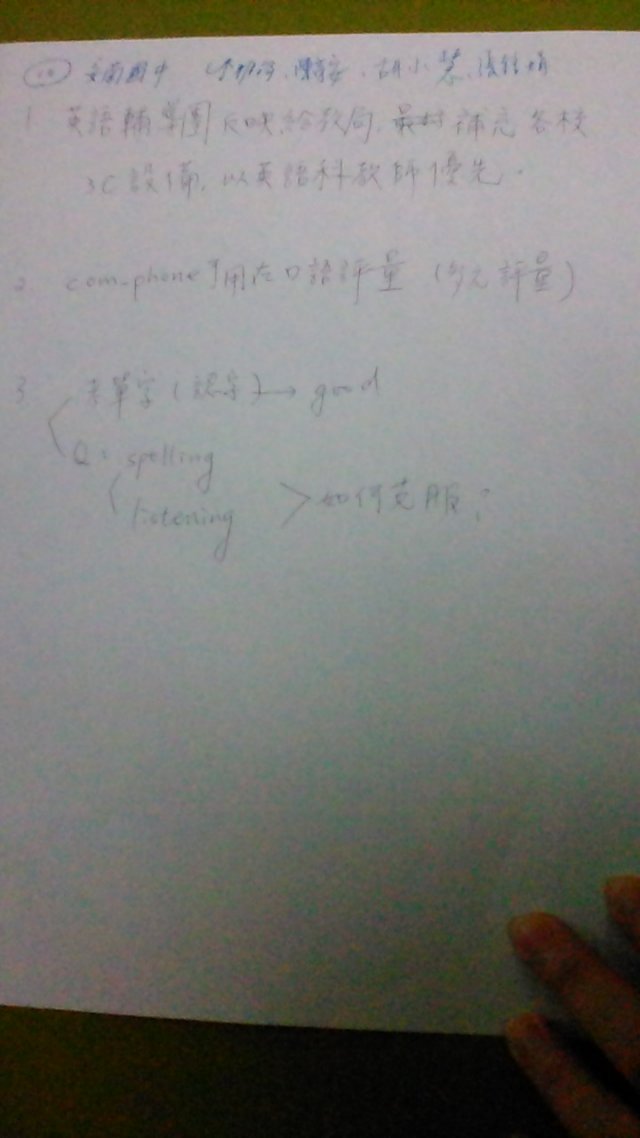 10 文南國中 胡小慧
1 英語輔導團反映給教局, 補充各校
3C設備, 以英語科教師優先.
2 com-phone 可用在口語評量 (多元評量)
3 單字 → good
Q: spelling
listening > 如何克服?